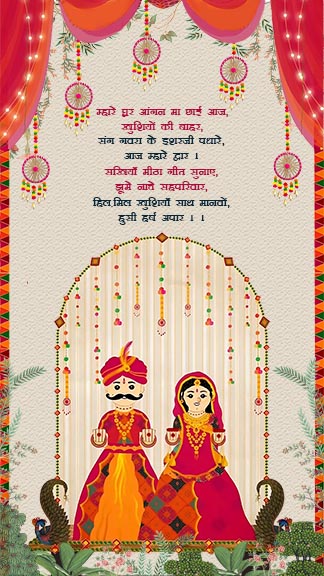 म्हारे घर आंगन मा छाई आज,
खुशियों की बाहर,
संग गवरा के इशरजी पधारे,
आज म्हारे द्वार ।
सखियाँ मीठा गीत सुनाए,
झूमे नाचे सहपरिवार,
हिल,मिल खुशियाँ साथ मानवों,
हुसी हर्ष अपार । ।